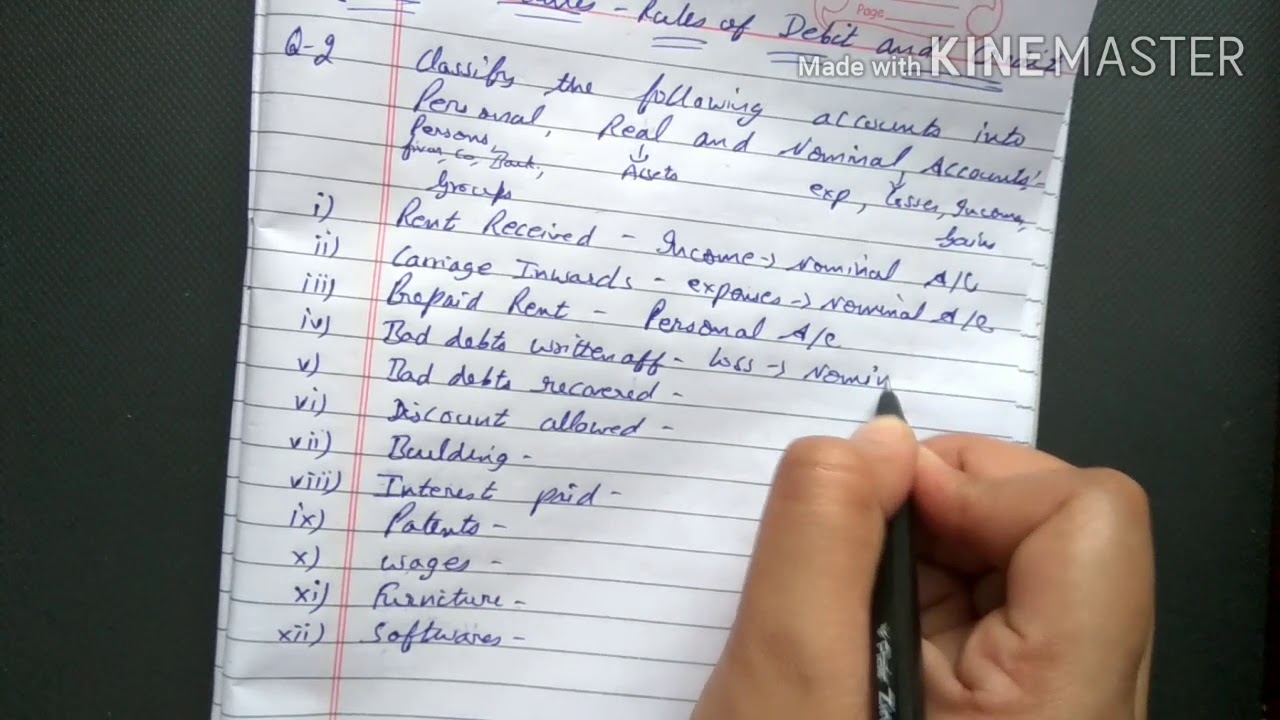 Page
- Rules of Debit and
Made with KINEMASTER
Q-2 Classify the following accounts into
Personal, Real and Nominal Accounts:-
Persons, Assets exp, losses, Income,
firms, Co, Bank, gain
Groups
i) Rent Received - Income → Nominal A/C
ii) Carriage Inwards - expenses → Nominal A/C
iii) Prepaid Rent - Personal A/C
iv) Bad debts written off - loss → Nomin
v) Bad debts recovered -
vi) Discount allowed -
vii) Building -
viii) Interest paid -
ix) Patents -
x) wages -
xi) Furniture -
xii) Softwares -